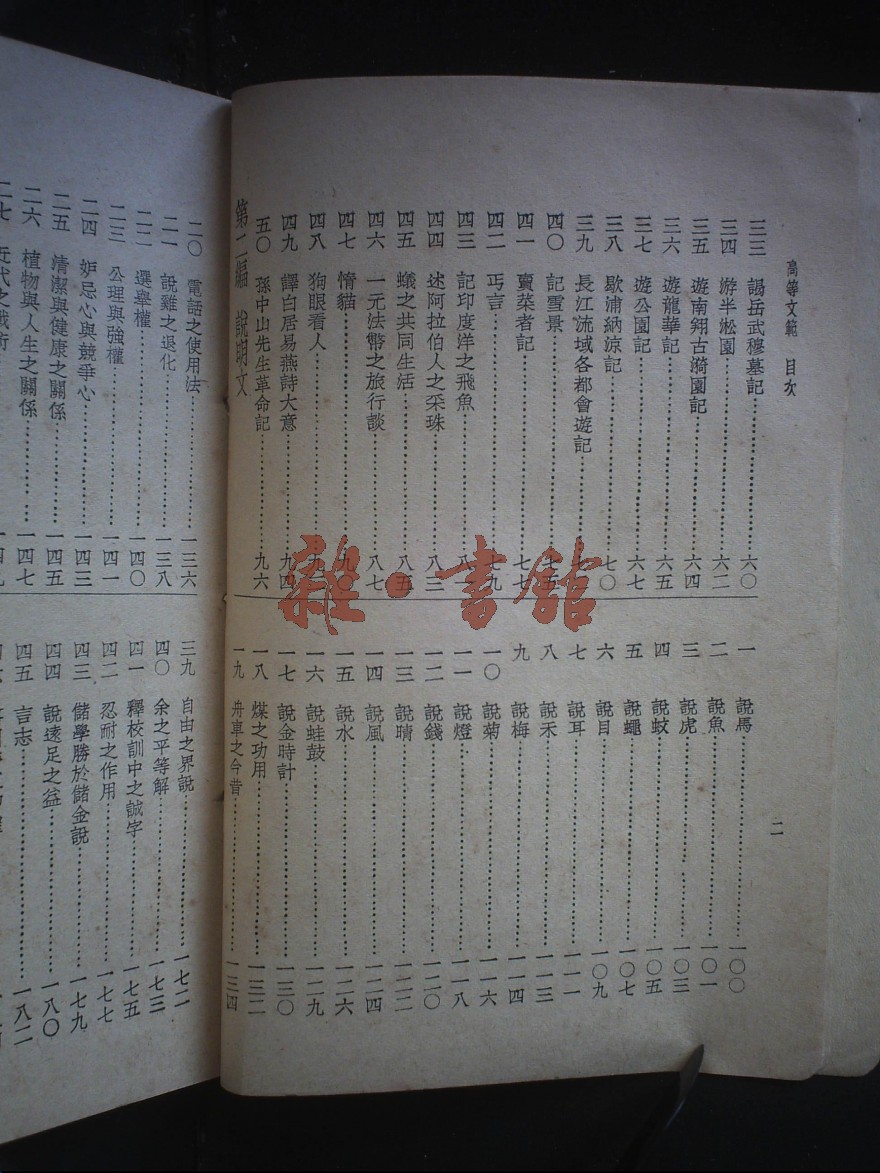 高等文範 目次
三三 謁岳武穆墓記 六〇
三四 游半淞園 六二
三五 遊南翔古漪園記 六四
三六 遊龍華記 六五
三七 遊公園記 六七
三八 歇浦納涼記 七〇
三九 長江流域各都會遊記
四〇 記雪景 七五
四一 賣菜者記 七七
四二 丐言 七九
四三 記印度洋之飛魚
四四 述阿拉伯人之采珠 八三
四五 蟻之共同生活 八五
四六 一元法幣之旅行談 八七
四七 惰貓 九〇
四八 狗眼看人
四九 譯白居易燕詩大意 九四
五〇 孫中山先生革命記 九六
第二編 說明文
一 說馬 一〇〇
二 說魚 一〇一
三 說虎 一〇三
四 說蚊 一〇五
五 說蠅 一〇七
六 說目 一〇九
七 說耳 一一一
八 說禾 一一三
九 說梅 一一四
一〇 說菊 一一六
一一 說燈 一一八
一二 說錢 一二〇
一三 說晴 一二二
一四 說風 一二四
一五 說水 一二六
一六 說蛙鼓 一二九
一七 說金時計 一三〇
一八 煤之功用 一三二
一九 舟車之今昔 一三四
二
二〇 電話之使用法 一三六
二一 說雞之退化 一三八
二二 選舉權 一四〇
二三 公理與強權 一四一
二四 妒忌心與競爭心 一四三
二五 清潔與健康之關係 一四五
二六 植物與人生之關係 一四七
二七 近代之戰術 一四九
三九 自由之界說 一七二
四〇 余之平等解 一七三
四一 釋校訓中之誠字 一七五
四二 忍耐之作用 一七七
四三 儲學勝於儲金說 一七九
四四 說遠足之益 一八〇
四五 言志 一八二
雜·書館